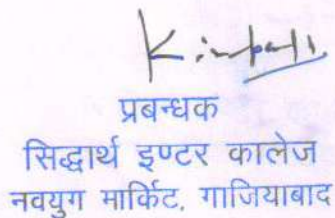 प्रबन्धक
सिद्धार्थ इण्टर कालेज
नवयुग मार्किट, गाजियाबाद